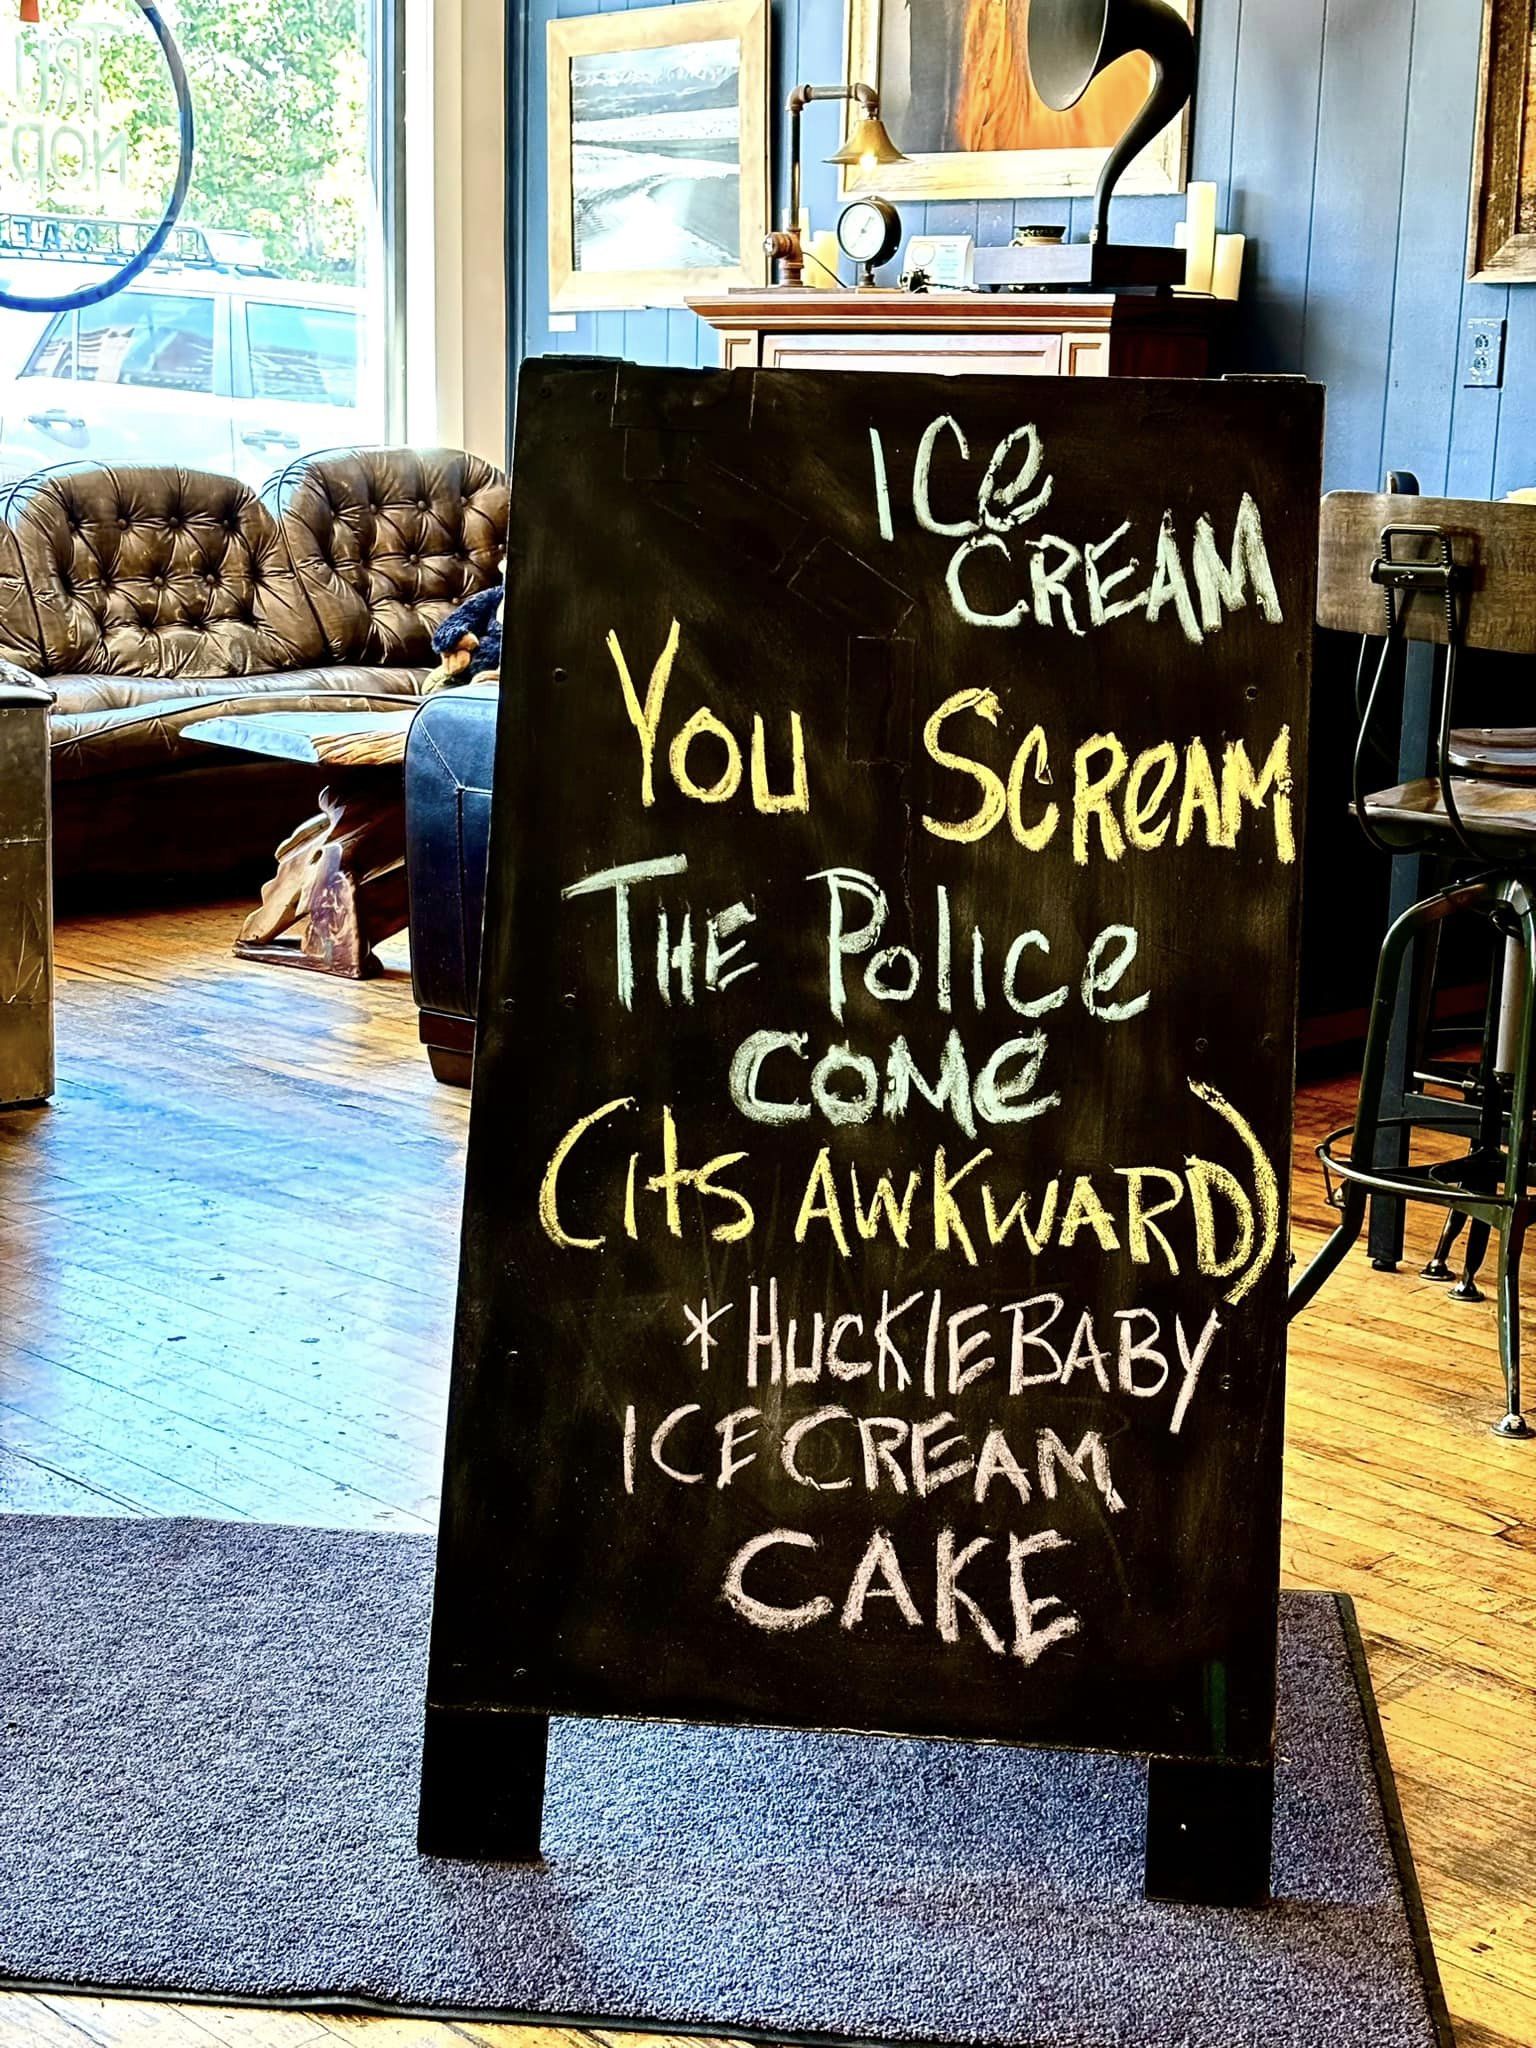 TRU
NOR
CAFE
ICe
CREAM
YOU SCReAM
THE POLICe
COMe
(its AWKWARD)
*HUCKLEBABY
ICE CREAM
CAKE